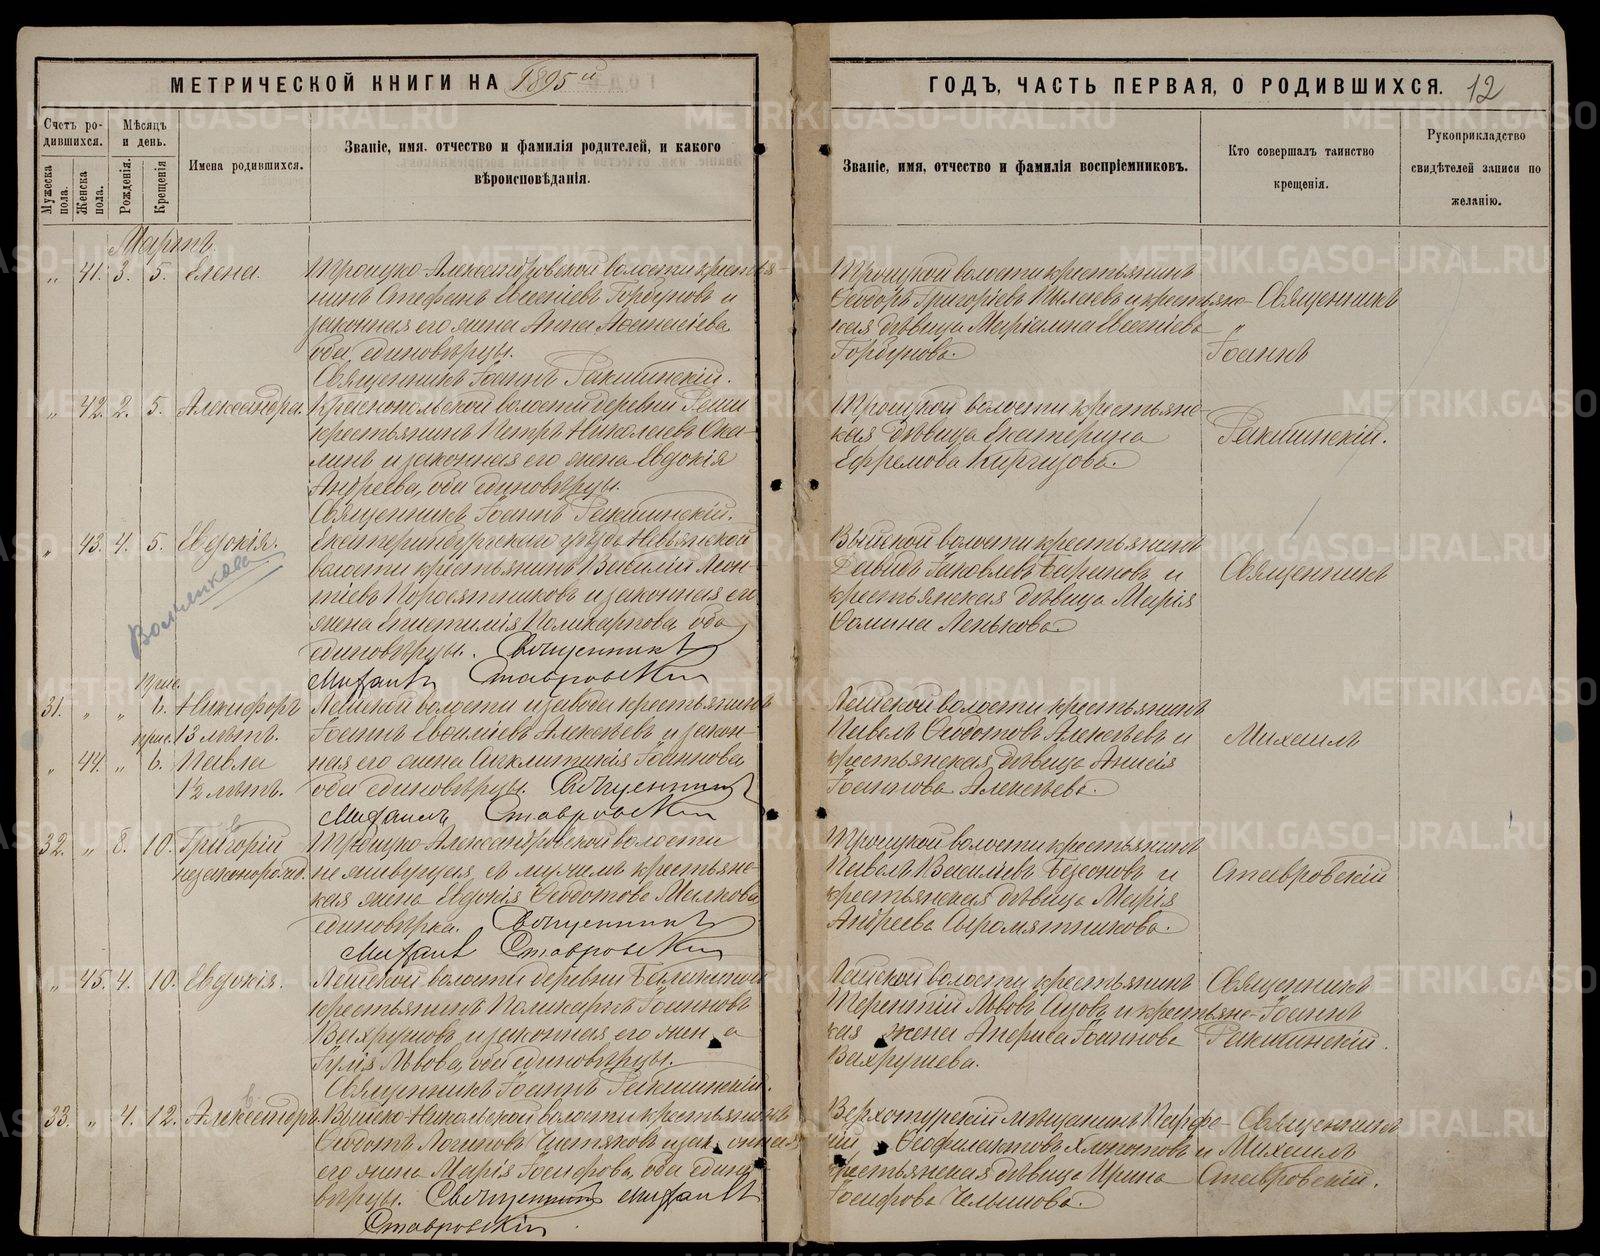 МЕТРИЧЕСКОЙ КНИГИ НА 1895 й
ГОДЪ, ЧАСТЬ ПЕРВАЯ, О РОДИВШИХСЯ. 12
Счетъ родившихся.
Мужеска пола.
Женска пола.
Мѣсяцъ и день.
Рожденія.
Крещенія
Имена родившихся.
Званіе, имя, отчество и фамилія родителей, и какого
вѣроисповѣданія.
Званіе, имя, отчество и фамилія воспріемниковъ.
Кто совершалъ таинство
крещенія.
Рукоприкладство
свидѣтелей записи по
желанію.
Мартъ.
„ 41. 3. 5. Елена.
Троицко-Александровской волости крестья-
нинъ Стефанъ Горбуновъ и
законная его жена Анна
оба единовѣрцы.
Священникъ Іоаннъ Ракшинскій.
Троицкой волости крестьянинъ
Ѳеодоръ Григоріевъ и крестьянс-
кая дѣвица
Горбунова.
Священникъ
„
Іоаннъ
„ 42. 2. 5. Александра.
Краснопольской волости деревни
крестьянинъ Петръ Николаевъ
и законная его жена Евдокія
Андреева, оба единовѣрцы.
Священникъ Іоаннъ Ракшинскій.
Троицкой волости крестьянс-
кая дѣвица Екатерина
Ефремова Киргизова.
Ракшинскій.
„ 43. 4. 5. Евдокія.
Екатеринбургскаго уѣзда Невьянской
волости крестьянинъ Василій Леон-
тіевъ Поросятниковъ и законная его
жена Епистимія Поликарпова, оба
единовѣрцы. Священникъ
Михаилъ Ставровскій
Выйской волости крестьянинъ
Давидъ Іаковлевъ Бариновъ и
крестьянская дѣвица Марія
Ѳомина Ленькова.
Священникъ
прис.
31. „ „ 6. Никифоръ
прис. 13 лѣтъ.
„ 44. „ 6. Павла
1½ лѣтъ.
Лайской волости и завода крестьянинъ
Іоаннъ Алексѣевъ и закон-
ная его жена Сигклитикія Іоаннова
оба единовѣрцы. Священникъ
Михаилъ Ставровскій
Лайской волости крестьянинъ
Павелъ Ѳеодотовъ Алексѣевъ и
крестьянская дѣвица Анисія
Іоаннова Алексѣева.
Михаилъ
32. „ 8. 10. Григорій
незаконорожд.
Троицко-Александровской волости
не живущая съ мужемъ крестьянс-
кая жена Евдокія Ѳеодотова
единовѣрка. Священникъ
Михаилъ Ставровскій
Троицкой волости крестьянинъ
Павелъ Василіевъ Безсоновъ и
крестьянская дѣвица Марія
Андреева Сыромятникова.
Ставровскій
„ 45. 4. 10. Евдокія.
Лайской волости деревни
крестьянинъ Поликарпъ Іоанновъ
Вахрушовъ и законная его жена
Львова, оба единовѣрцы.
Священникъ Іоаннъ Ракшинскій.
Лайской волости крестьянинъ
Терентій Львовъ и крестьянс-
кая жена Іоаннова
Вахрушева.
Священникъ
Іоаннъ
Ракшинскій.
33. „ 4. 12. Александръ.
Выйско-Никольской волости крестьянинъ
Ѳеодотъ и законная
его жена Марія Іосифова, оба едино-
вѣрцы. Священникъ Михаилъ
Ставровскій.
Верхотурскій мѣщанинъ
Ѳеофилактовъ и
крестьянская дѣвица Ирина
Іосифова
Священникъ
Михаилъ
Ставровскій.
METRIKI.GASO-URAL.RU